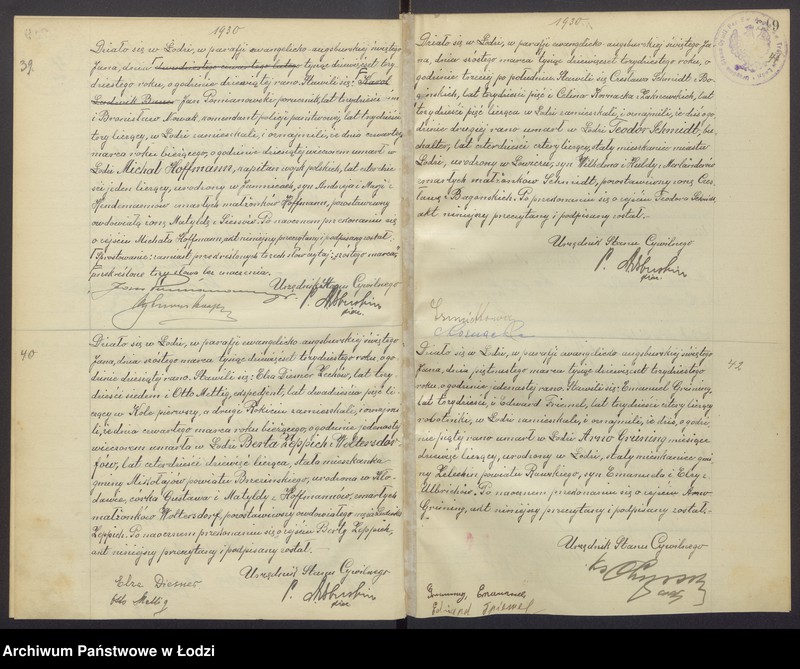 1930
39.
Działo się w Łodzi, w parafji ewangelicko-augsburskiej świętego
Jana, dnia dwudziestego czwartego lutego tysiąc dziewięćset trzy-
dziestego roku, o godzinie dziewiątej rano. Stawili się: Karol
Ludwik Jan Pomianowski porucznik, lat trzydzieści
i Bronisław Nowak, komendant policji państwowej, lat trzydzieści
trzy liczący, w Łodzi zamieszkali, i oznajmili, że dnia czwartego
marca roku bieżącego, o godzinie dziesiątej wieczorem umarł w
Łodzi Michał Hoffmann, kapitan wojsk polskich, lat czterdzie-
ści jeden liczący, urodzony w syn Andrzeja i Marji z
umarłych małżonków Hoffmann, pozostawiwszy
owdowiałą żonę Matyldę z Po naocznem przekonaniu się
o zejściu Michała Hoffmanna, akt niniejszy przeczytany i podpisany został.
Sprostowanie: zamiast przekreślonych trzech słów czytaj: "szóstego marca",
przekreślone trzy słowa bez znaczenia.
Urzędnik Stanu Cywilnego
40
Działo się w Łodzi, w parafji ewangelicko-augsburskiej świętego
Jana, dnia szóstego marca tysiąc dziewięćset trzydziestego roku, o go-
dzinie dziesiątej rano. Stawili się: Elza Diesner Zechów, lat trzy-
dzieści siedem i Otto Mettig, ekspedjent, lat dwadzieścia pięć li-
czący w Kole pierwszy, a drugi w Rokiciu zamieszkali, i oznajmi-
li, że dnia czwartego marca roku bieżącego, o godzinie jedenastej
wieczorem umarła w Łodzi Berta Zeppich z Woltersdor-
fów, lat czterdzieści dziewięć licząca, stała mieszkanka
gminy Mikołajów powiatu Brzezińskiego, urodzona w Kło-
dawie, córka Gustawa i Matyldy z Hoffmannów, umarłych
małżonków Woltersdorf, pozostawiwszy owdowiałego męża
Zeppich. Po naocznem przekonaniu się o zejściu Berty Zeppich,
akt niniejszy przeczytany i podpisany został.
Urzędnik Stanu Cywilnego
Elza Diesner
Otto Mettig
1930
Działo się w Łodzi, w parafji ewangelicko-augsburskiej świętego Ja-
na, dnia szóstego marca tysiąc dziewięćset trzydziestego roku, o
godzinie trzeciej po południu. Stawili się Czesława Schmidt z Ba-
gońskich, lat trzydzieści pięć i Celina Kornacka z lat
trzydzieści pięć licząca w Łodzi zamieszkałe, i oznajmiły, że dziś o go-
dzinie drugiej rano umarł w Łodzi Teodor Schmidt, bu-
chalter, lat czterdzieści cztery liczący, stały mieszkaniec miasta
Łodzi, urodzony w Łowiczu, syn Wilhelma i Huldy z
umarłych małżonków Schmidt, pozostawiwszy żonę Cze-
sławę z Bagońskich. Po przekonaniu się o zejściu Teodora Schmidt,
akt niniejszy przeczytany i podpisany został.
Urzędnik Stanu Cywilnego
42
Działo się w Łodzi, w parafji ewangelicko-augsburskiej świętego
Jana, dnia piętnastego marca tysiąc dziewięćset trzydziestego
roku, o godzinie jedenastej rano. Stawili się: Emanuel Grüning,
lat trzydzieści, i Edward Friemel, lat trzydzieści cztery liczący
robotnik, w Łodzi zamieszkali, i oznajmili, że dziś, o godzi-
nie piątej rano umarł w Łodzi Arno Grüning miesiące
dziewięć liczący, urodzony w Łodzi, stały mieszkaniec gmi-
ny powiatu Rawskiego, syn Emanuela i Elzy z
Ulbrichów. Po naocznem przekonaniu się o zejściu Arno
Grüning, akt niniejszy przeczytany i podpisany został.
Urzędnik Stanu Cywilnego
Grüning, Emanuel
Edward Friemel
Archiwum Państwowe w Łodzi